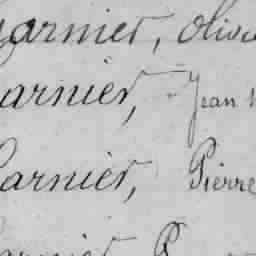 Garnier, Olivi
arnier, Jean
Garnier, Pierre